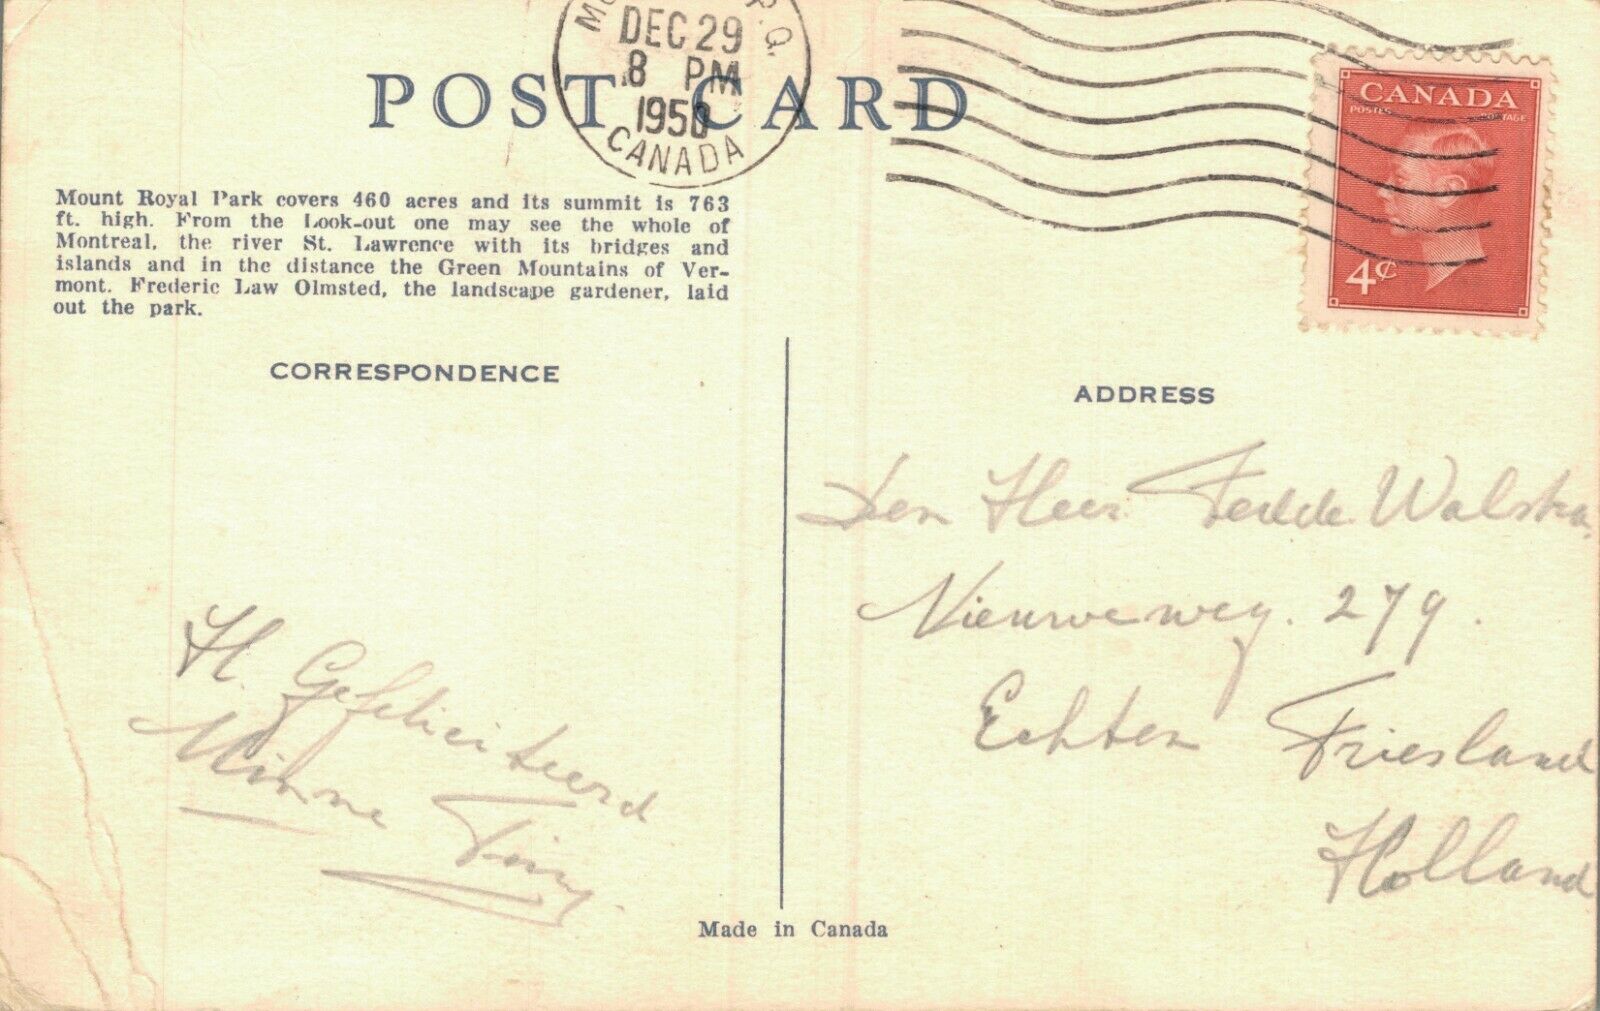 DEC 29
8 PM
1950
CANADA
POST CARD
CANADA
POSTES POSTAGE
4¢
Mount Royal Park covers 460 acres and its summit is 763
ft. high. From the Look-out one may see the whole of
Montreal, the river St. Lawrence with its bridges and
islands and in the distance the Green Mountains of Ver-
mont. Frederic Law Olmsted, the landscape gardener, laid
out the park.
CORRESPONDENCE
H. Gefeliciteerd
Minne Tiny.
ADDRESS
Den Heer Fedde Walstra,
Nieuweweg. 279.
Echten Friesland
Holland
Made in Canada